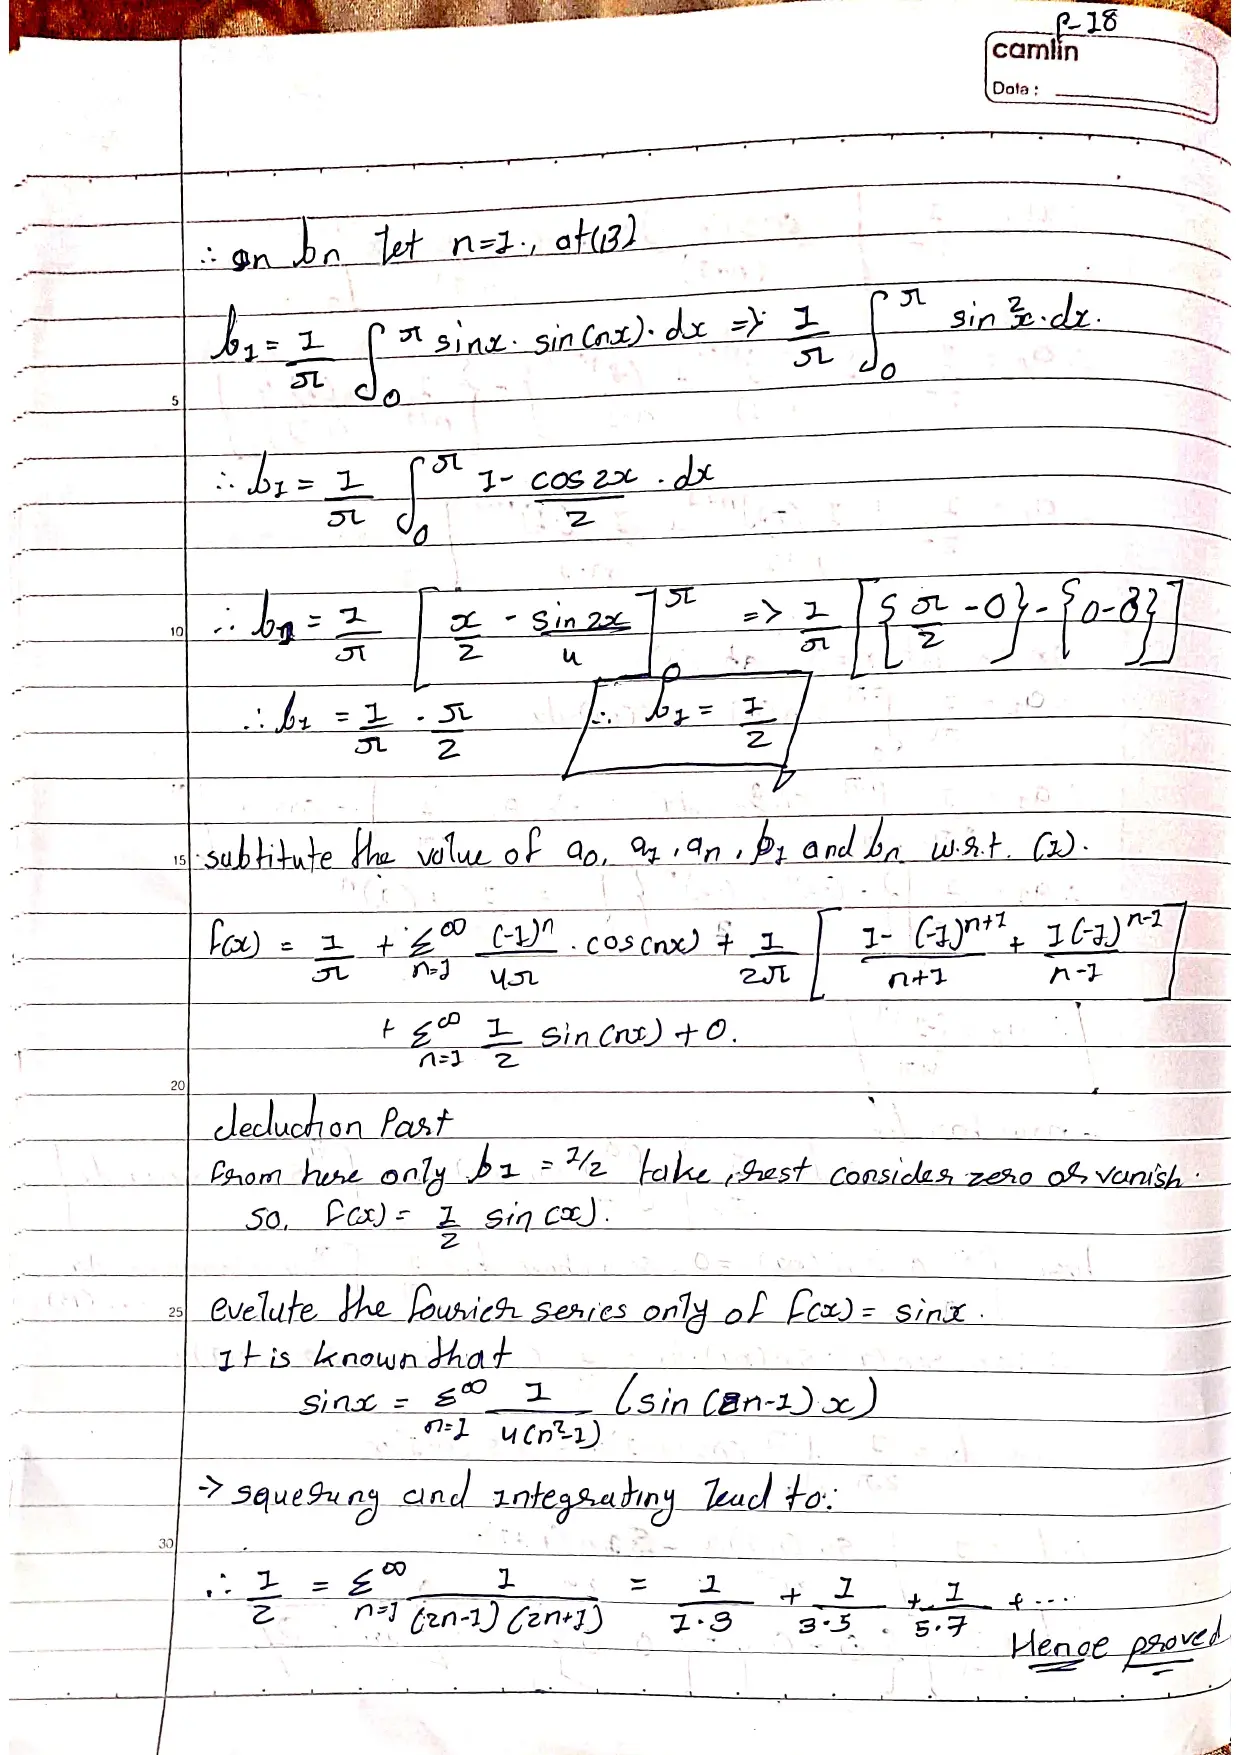 P-18
camlin
Date :
∴ In bn let n=1., at(13)
b1 = 1/π ∫_0^π sinx. sin(nx). dx => 1/π ∫_0^π sin²x.dx.
5
∴ b1 = 1/π ∫_0^π 1- cos2x/2 . dx
10
∴ b1 = 1/π [x/2 - sin2x/4]_0^π => 1/π [{π/2 -0}-{0-0}]
∴ b1 = 1/π . π/2 ∴ b1 = 1/2
15 substitute the value of a0, a1, an, b1 and bn w.r.t. (1).
f(x) = 1/π + Σ_{n=1}^∞ (-1)^n/4π . cos(nx) + 1/2π [1-(-1)^{n+1}/n+1 + 1(-1)^{n-1}/n-1]
+ Σ_{n=1}^∞ 1/2 sin(nx) + 0.
20
deduction Part
from here only b1 = 1/2 take, rest consider zero or vanish.
so, f(x) = 1/2 sin(x).
25 evelute the fourier series only of f(x) = sinx.
It is known that
sinx = Σ_{n=1}^∞ 1/4(n²-1) (sin(2n-1)x)
-> squering and integrating lead to:
30
∴ 1/2 = Σ_{n=1}^∞ 1/(2n-1)(2n+1) = 1/1·3 + 1/3·5 + 1/5·7 + ...
Hence proved